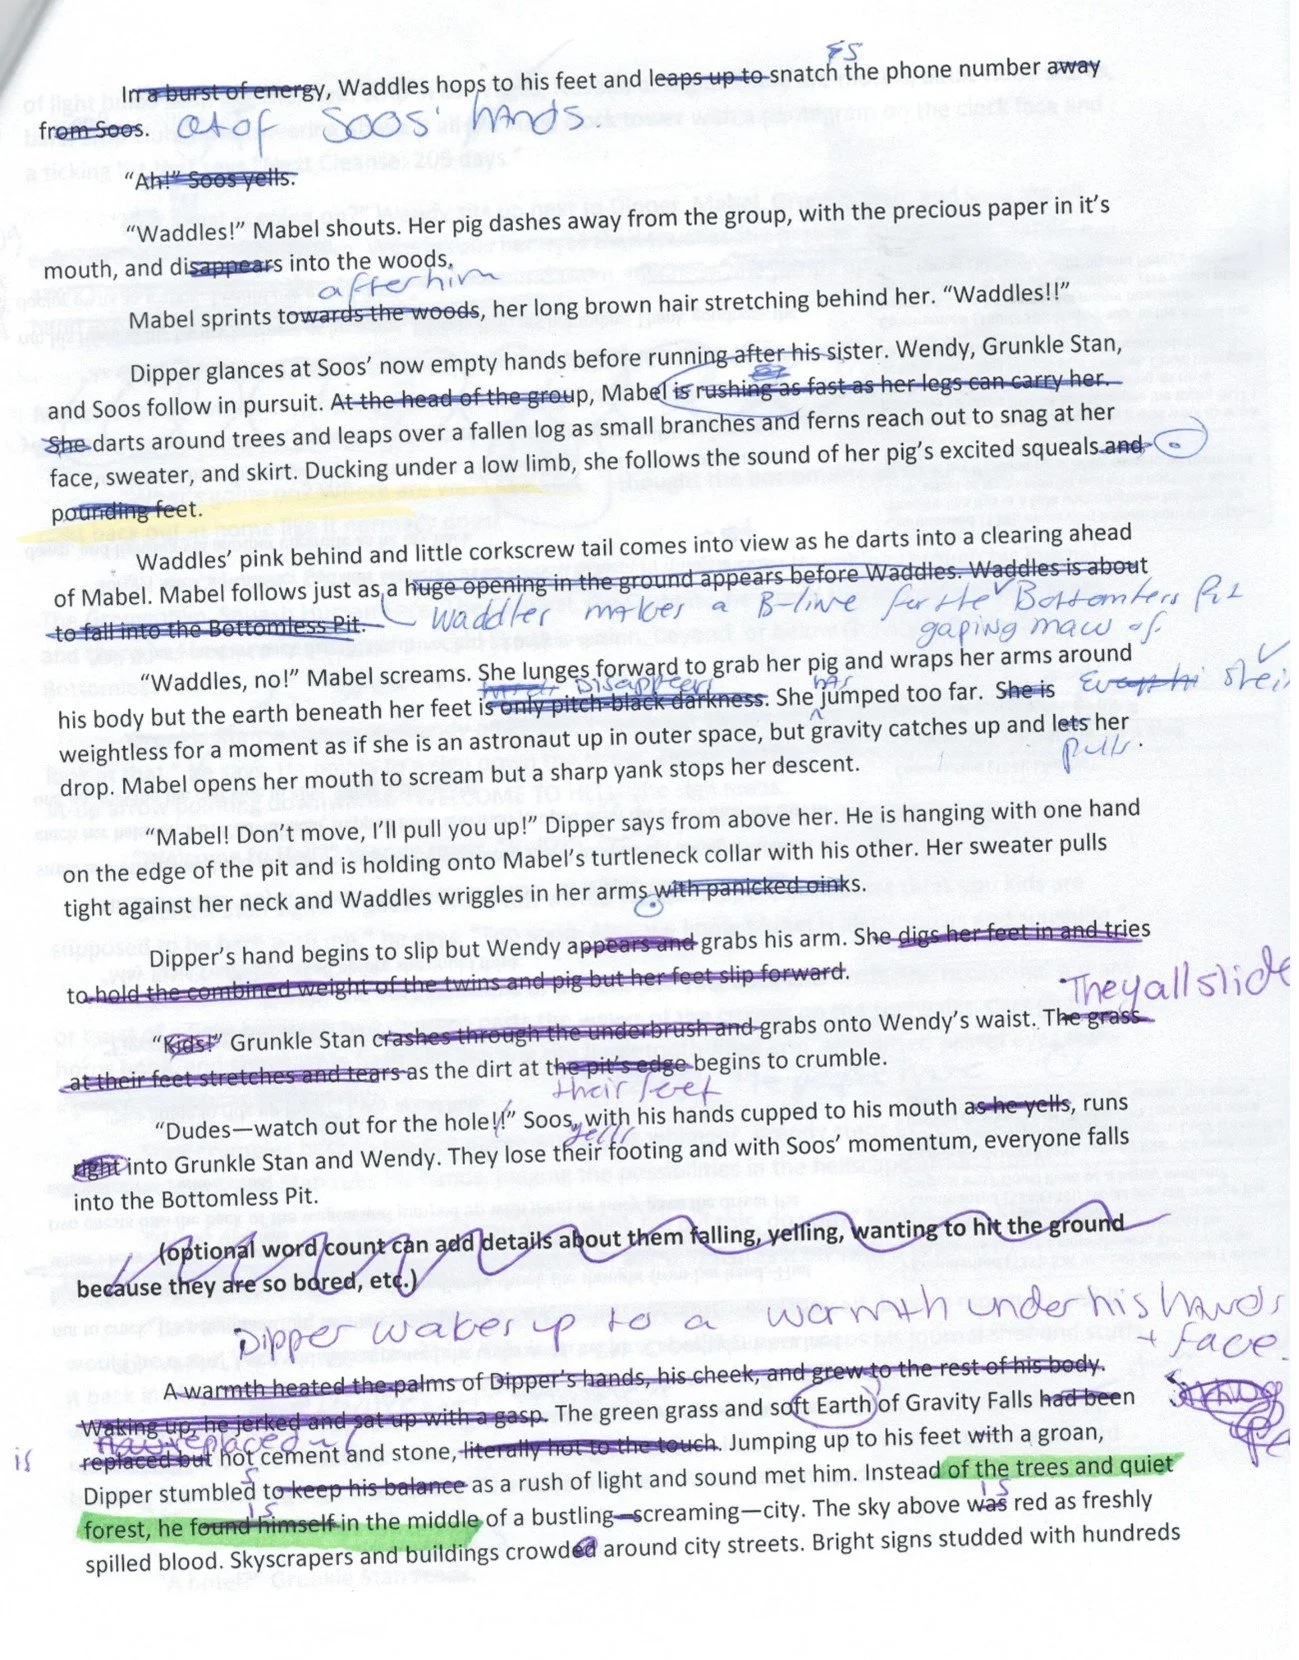 ES
In a burst of energy, Waddles hops to his feet and leaps up to snatch the phone number away
from Soos. out of Soos' hands.
"Ah!" Soos yells.
"Waddles!" Mabel shouts. Her pig dashes away from the group, with the precious paper in it's
mouth, and disappears into the woods.
after him
Mabel sprints towards the woods, her long brown hair stretching behind her. "Waddles!!"
Dipper glances at Soos' now empty hands before running after his sister. Wendy, Grunkle Stan,
and Soos follow in pursuit. At the head of the group, Mabel is rushing as fast as her legs can carry her.
She darts around trees and leaps over a fallen log as small branches and ferns reach out to snag at her
face, sweater, and skirt. Ducking under a low limb, she follows the sound of her pig's excited squeals and .
pounding feet.
Waddles' pink behind and little corkscrew tail comes into view as he darts into a clearing ahead
of Mabel. Mabel follows just as a huge opening in the ground appears before Waddles. Waddles is about
to fall into the Bottomless Pit. Waddles makes a B-line for the Bottomless Pit
gaping maw of
"Waddles, no!" Mabel screams. She lunges forward to grab her pig and wraps her arms around
Disappears has
his body but the earth beneath her feet is only pitch-black darkness. She jumped too far. She is
weightless for a moment as if she is an astronaut up in outer space, but gravity catches up and lets her
pulls
drop. Mabel opens her mouth to scream but a sharp yank stops her descent.
"Mabel! Don't move, I'll pull you up!" Dipper says from above her. He is hanging with one hand
on the edge of the pit and is holding onto Mabel's turtleneck collar with his other. Her sweater pulls
tight against her neck and Waddles wriggles in her arms with panicked oinks.
Dipper's hand begins to slip but Wendy appears and grabs his arm. She digs her feet in and tries
to hold the combined weight of the twins and pig but her feet slip forward.
They all slide
"Kids!" Grunkle Stan crashes through the underbrush and grabs onto Wendy's waist. The grass
at their feet stretches and tears as the dirt at the pit's edge begins to crumble.
their feet
"Dudes—watch out for the hole!!" Soos, with his hands cupped to his mouth as he yells, runs
yells
right into Grunkle Stan and Wendy. They lose their footing and with Soos' momentum, everyone falls
into the Bottomless Pit.
(optional word count can add details about them falling, yelling, wanting to hit the ground
because they are so bored, etc.)
Dipper wakes up to a warmth under his hands
+ face.
A warmth heated the palms of Dipper's hands, his cheek, and grew to the rest of his body.
Waking up, he jerked and sat up with a gasp. The green grass and soft Earth of Gravity Falls had been
is replaced but hot cement and stone, literally hot to the touch. Jumping up to his feet with a groan,
s
Dipper stumbled to keep his balance as a rush of light and sound met him. Instead of the trees and quiet
is is
forest, he found himself in the middle of a bustling—screaming—city. The sky above was red as freshly
spilled blood. Skyscrapers and buildings crowded around city streets. Bright signs studded with hundreds